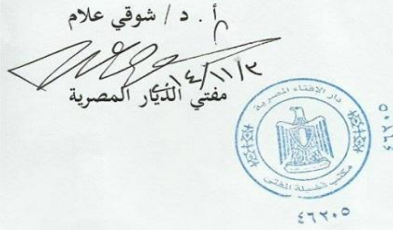 أ. د / شوقي علام
٢٠١٤/١١/٣
مفتي الديار المصرية
دار الإفتاء المصرية
مكتب فضيلة المفتى
٥٠٢٦٤
٤٦٢٠٥